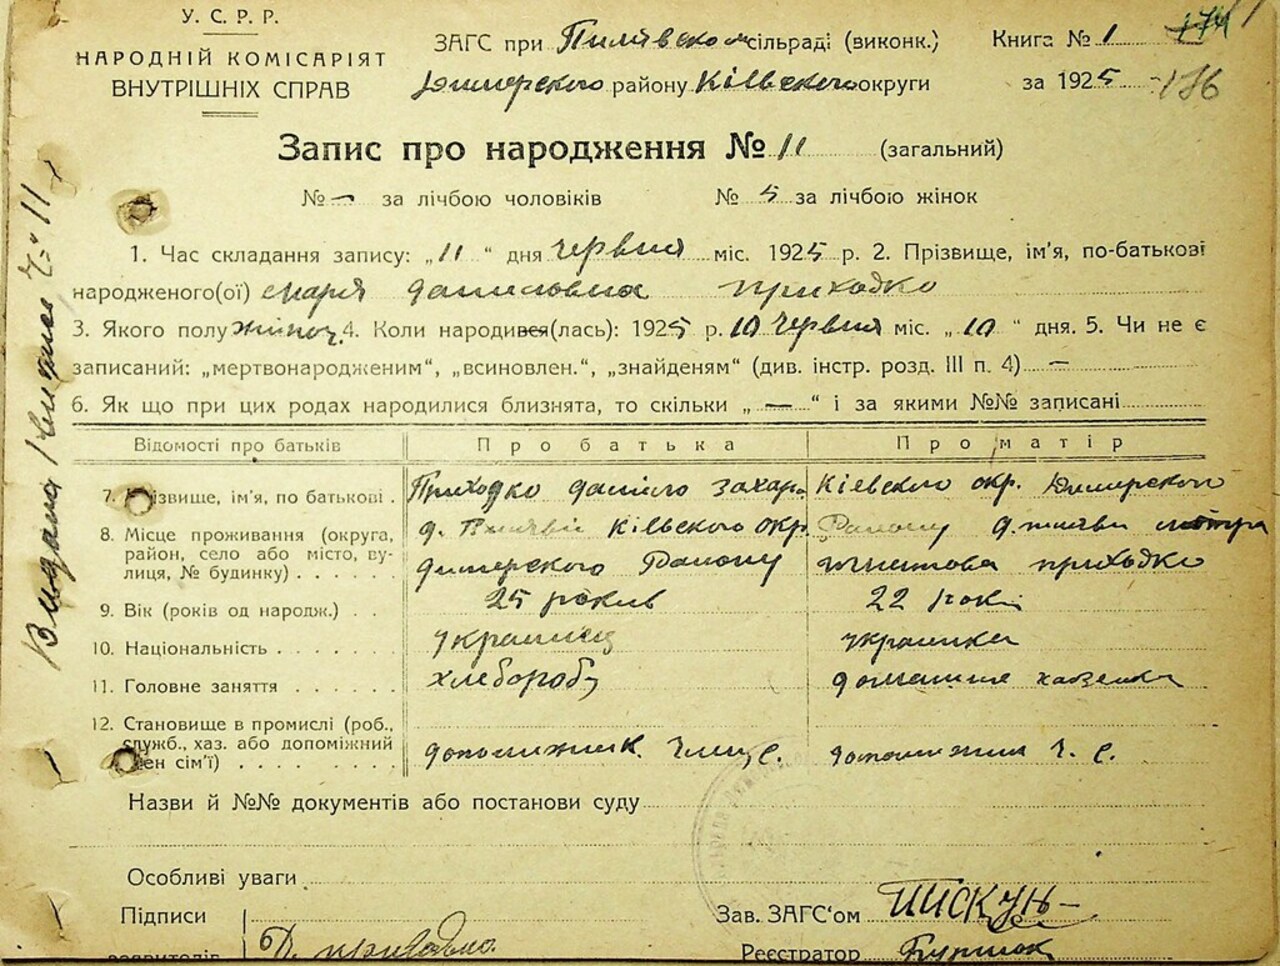 У. С. Р. Р.
НАРОДНІЙ КОМІСАРІЯТ
ВНУТРІШНІХ СПРАВ
ЗАГС при сільраді (виконк.)
Димерского району Київского округи
Книга № 1
за 1925
174
176
Запис про народження № 11 (загальний)
№ — за лічбою чоловіків № 5 за лічбою жінок
1. Час складання запису: „11“ дня червня міс. 1925 р. 2. Прізвище, ім'я, по-батькові
народженого(ої) Марія даниловна приходко
3. Якого полу жіноч. 4. Коли народився(лась): 1925 р. 10 червня міс. „10“ дня. 5. Чи не є
записаний: „мертвонародженим“, „всиновлен.“, „знайденям“ (див. інстр. розд. III п. 4) —
6. Як що при цих родах народилися близнята, то скільки „—“ і за якими №№ записані
Відомості про батьків Про батька Про матір
7. Прізвище, ім'я, по батькові . Приходко даніло захар. Кіевского окр. Димерского
8. Місце проживання (округа, район, село або місто, вулиця, № будинку) . . . . . д. Кіевского окр. Району д.
димерского Району приходко
9. Вік (років од народж.) . . 25 років 22 рокі
10. Національність . . . . . . . украинец украинка
11. Головне заняття . . . . . . хлебороб домашне хазяика
12. Становище в промислі (роб., служб., хаз. або допоміжний член сім'ї) . . . . . . . . . допомижник члиц с. допомижник ч. с.
Назви й №№ документів або постанови суду
Особливі уваги
Підписи
заявителів Д. приходко
Зав. ЗАГС'ом ПИСКУН
Реєстратор
Видана 11